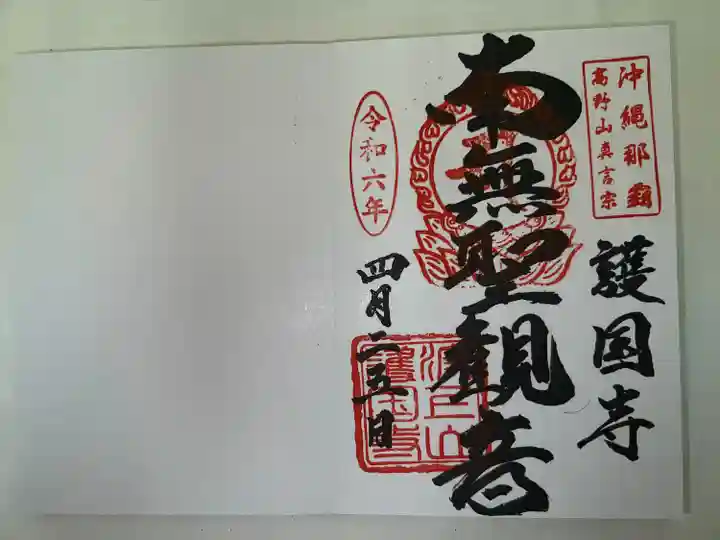 沖縄那覇
高野山真言宗
護国寺
南無聖観音
令和六年
四月二五日
護国寺